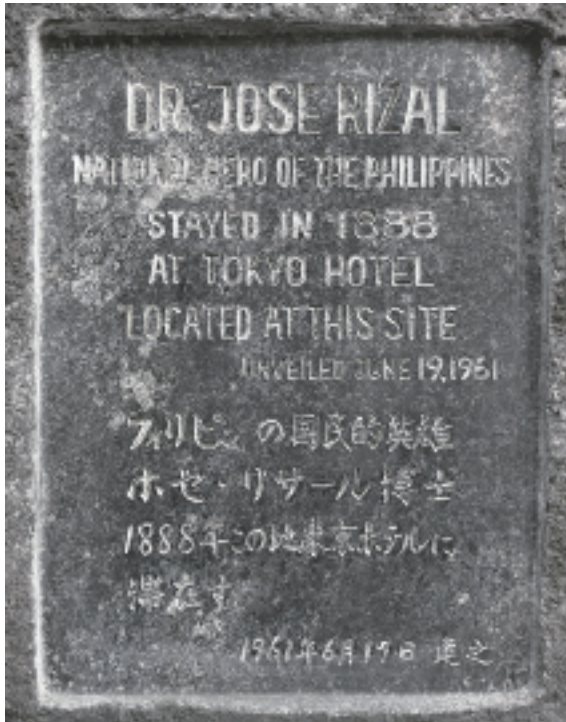 DR. JOSE RIZAL
NATIONAL HERO OF THE PHILIPPINES
STAYED IN 1888
AT TOKYO HOTEL
LOCATED AT THIS SITE
UNVEILED JUNE 19,1961
フィリピンの国民的英雄
ホセ・リサール博士
1888年この地東京ホテルに
滞在す
1961年6月19日 建之